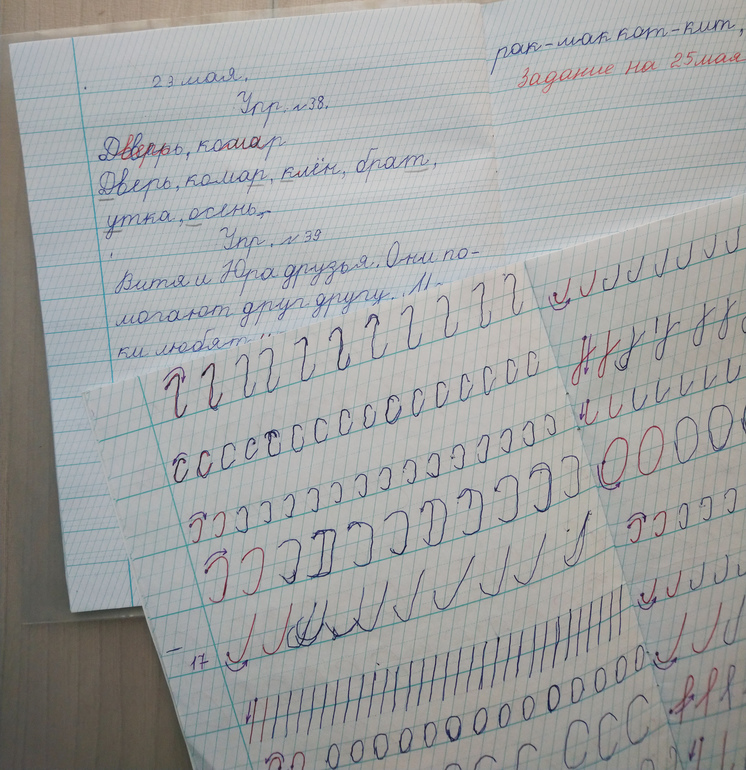 23 мая.
Упр. №38.
Дверь, комар
Дверь, комар, клён, брат,
утка, осень.
Упр. №39
Витя и Юра друзья. Они по-
могают друг другу.
ки любят
рак-мак кот-кит,
Задание на 25 мая
17